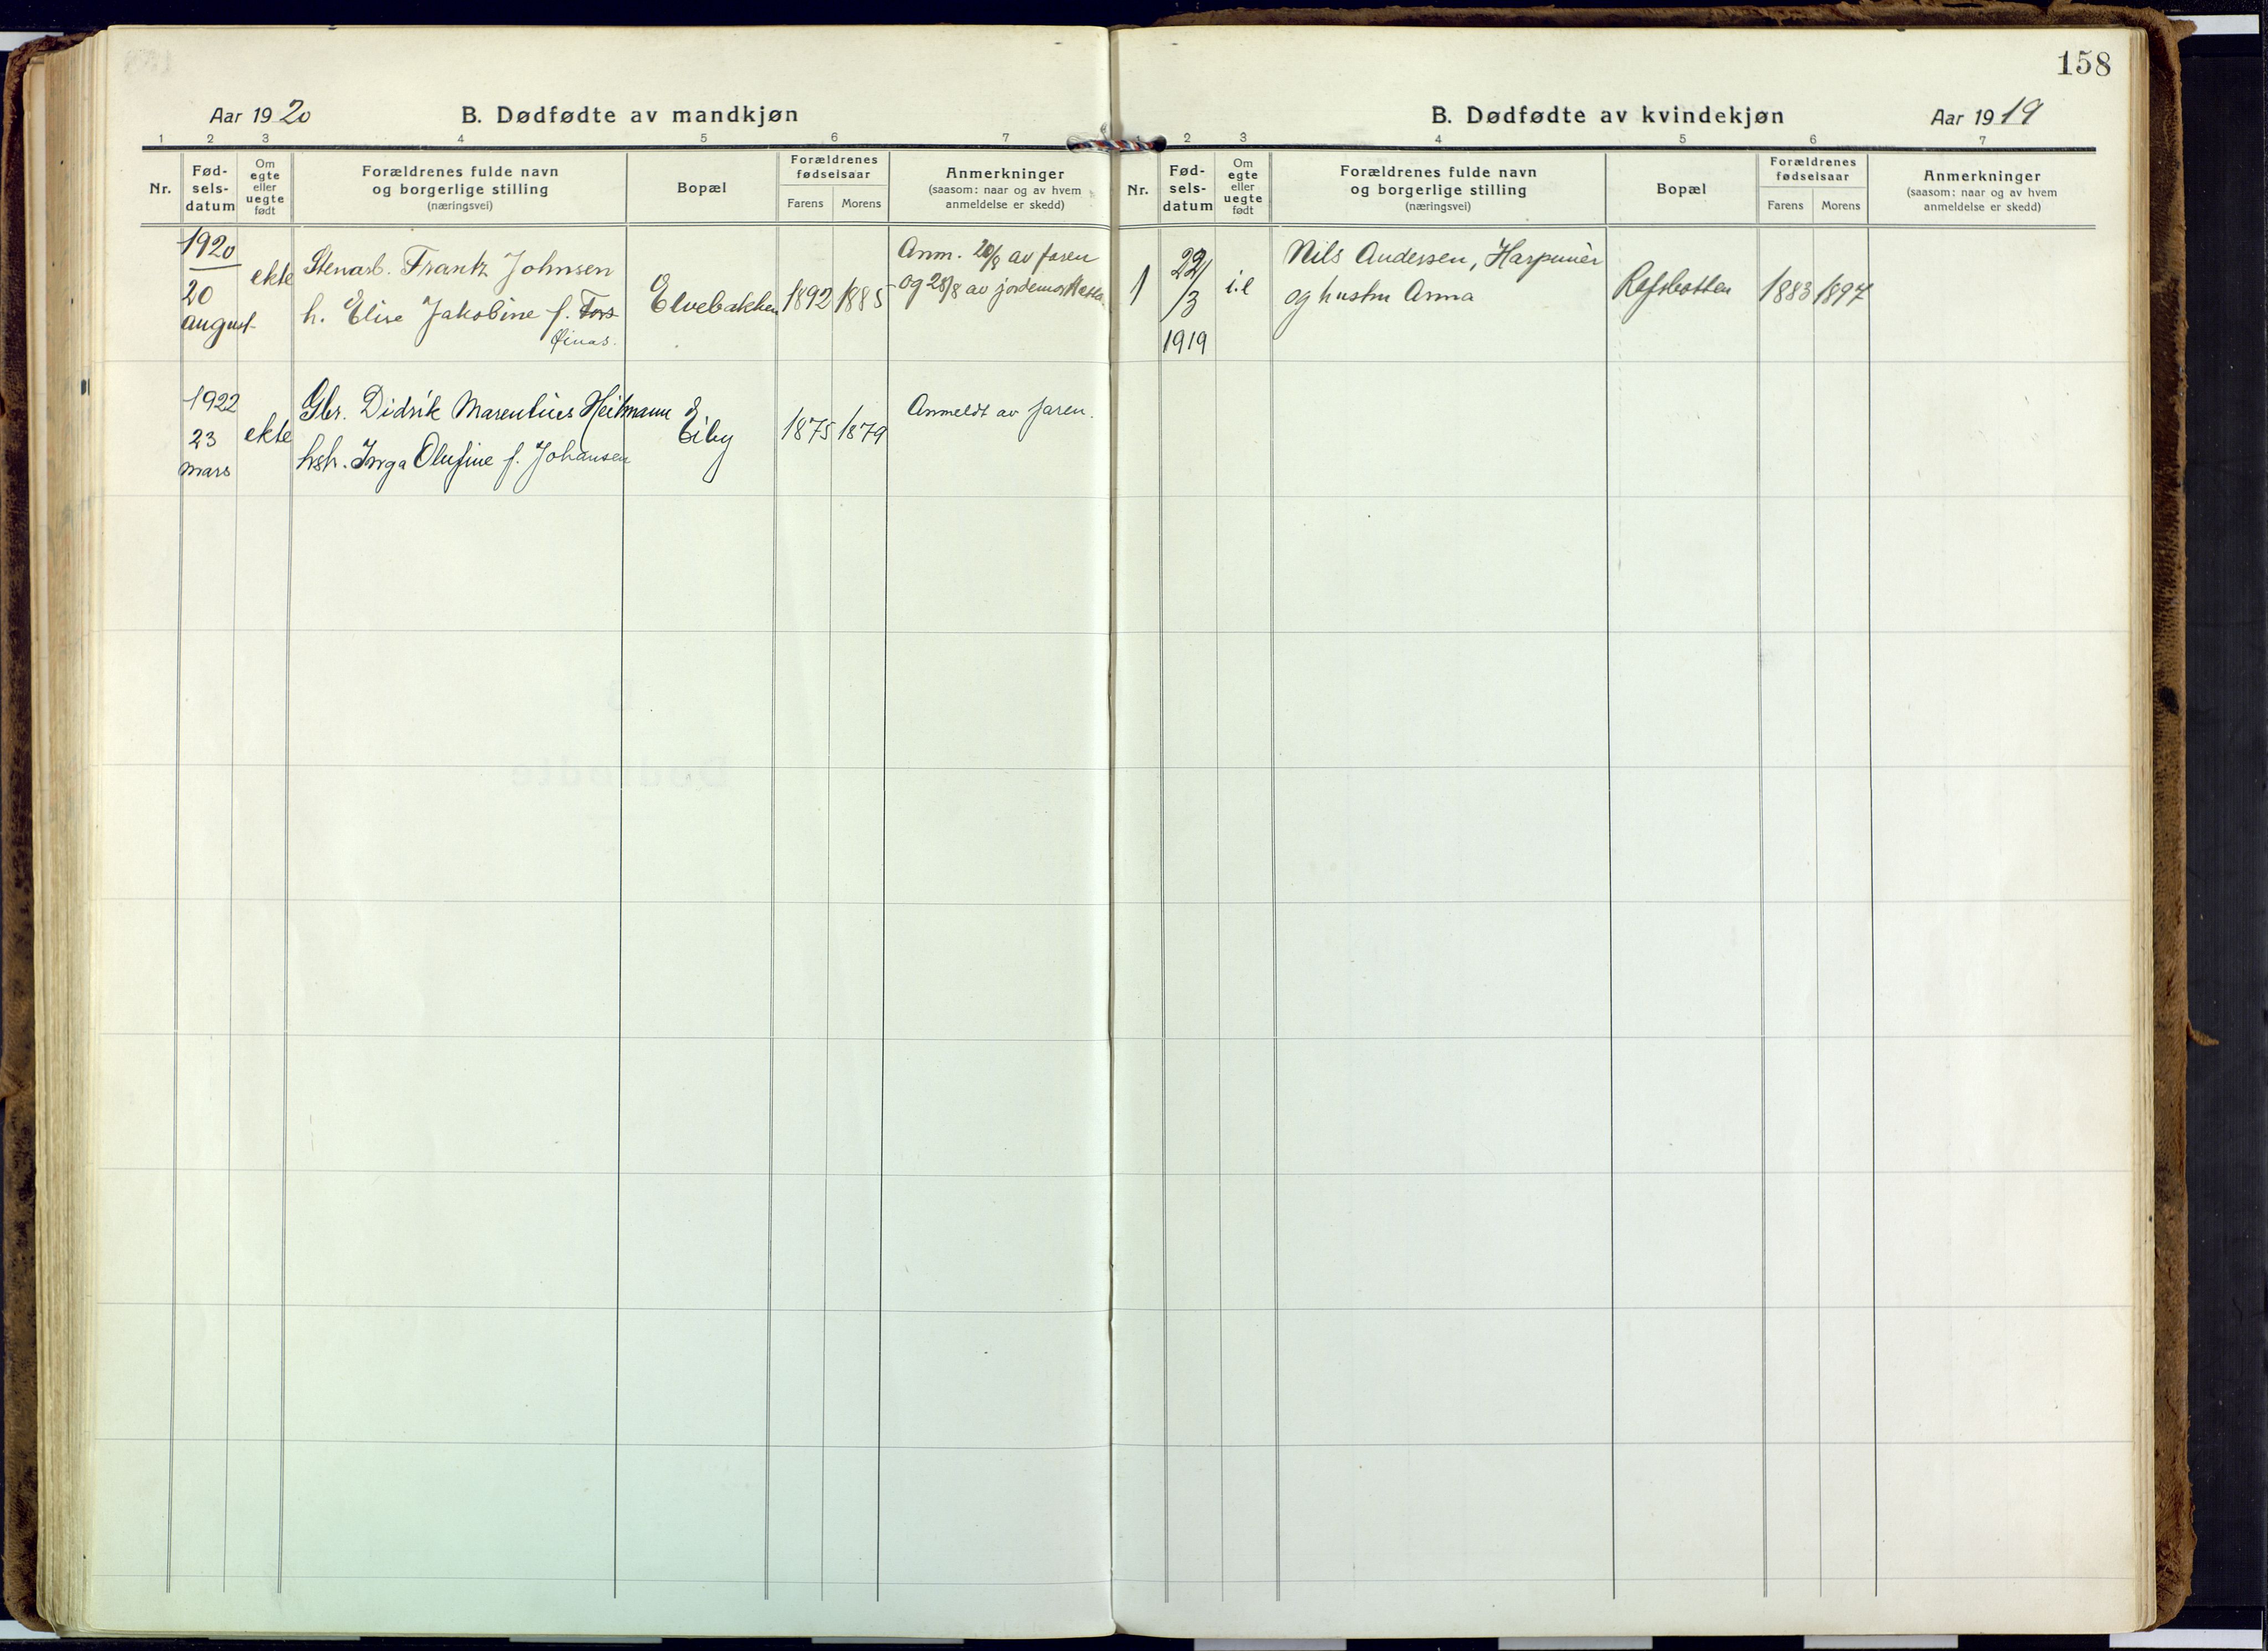 158
Aar 1920 B. Dødfødte av mandkjøn
1 2 3 4 5 6 7
Nr.
Fød-
sels-
datum
Om
egte
eller
uegte
født
Forældrenes fulde navn
og borgerlige stilling
(næringsvei)
Bopæl
Forældrenes
fødselsaar
Farens Morens
Anmerkninger
(saasom: naar og av hvem
anmeldelse er skedd)
1920
20
august
ekte
Stenarb. Frantz Johnsen
h. Elise Jakobine f. Fors
Elvebakken
1892 1885
Anm. 20/8 av faren
og 28/8 av jordemor
1922
23
mars
ekte
Gbr. Didrik Marentius Heitmann
hsh. Inga Olufine f. Johansen
Eiby
1875 1879
Anmeldt av faren.
B. Dødfødte av kvindekjøn Aar 1919
2 3 4 5 6 7
Nr.
Fød-
sels-
datum
Om
egte
eller
uegte
født
Forældrenes fulde navn
og borgerlige stilling
(næringsvei)
Bopæl
Forældrenes
fødselsaar
Farens Morens
Anmerkninger
(saasom: naar og av hvem
anmeldelse er skedd)
1
22/
/3
1919
Nils Andersen, Harpunér
og hustru Anna
Rafsbotten
1883 1897